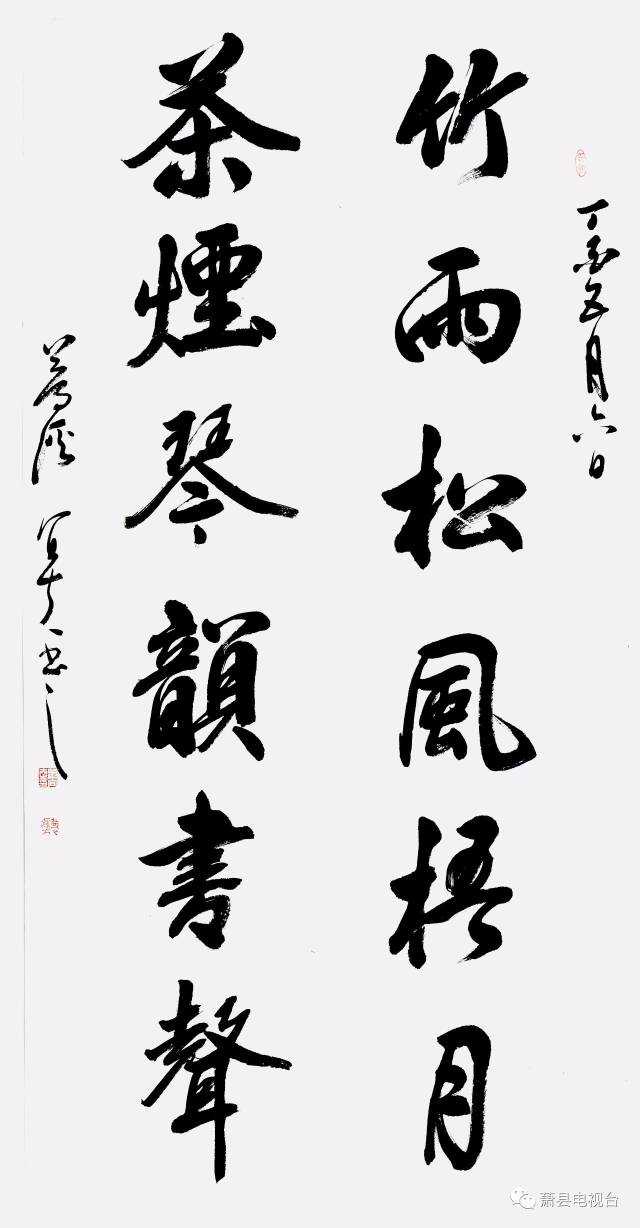 丁酉五月六日
竹雨松風梧月
茶煙琴韻書聲
萧县电视台